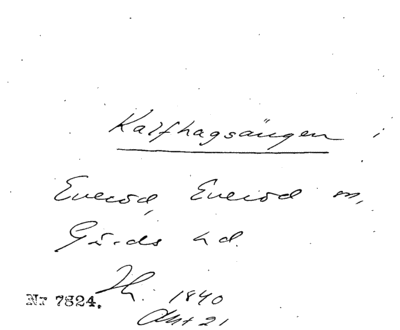 Kalfhagsängen i
Everöd, Everöd sn,
Gärds hd.
Nr 7824. Th. 1840
Akt 21